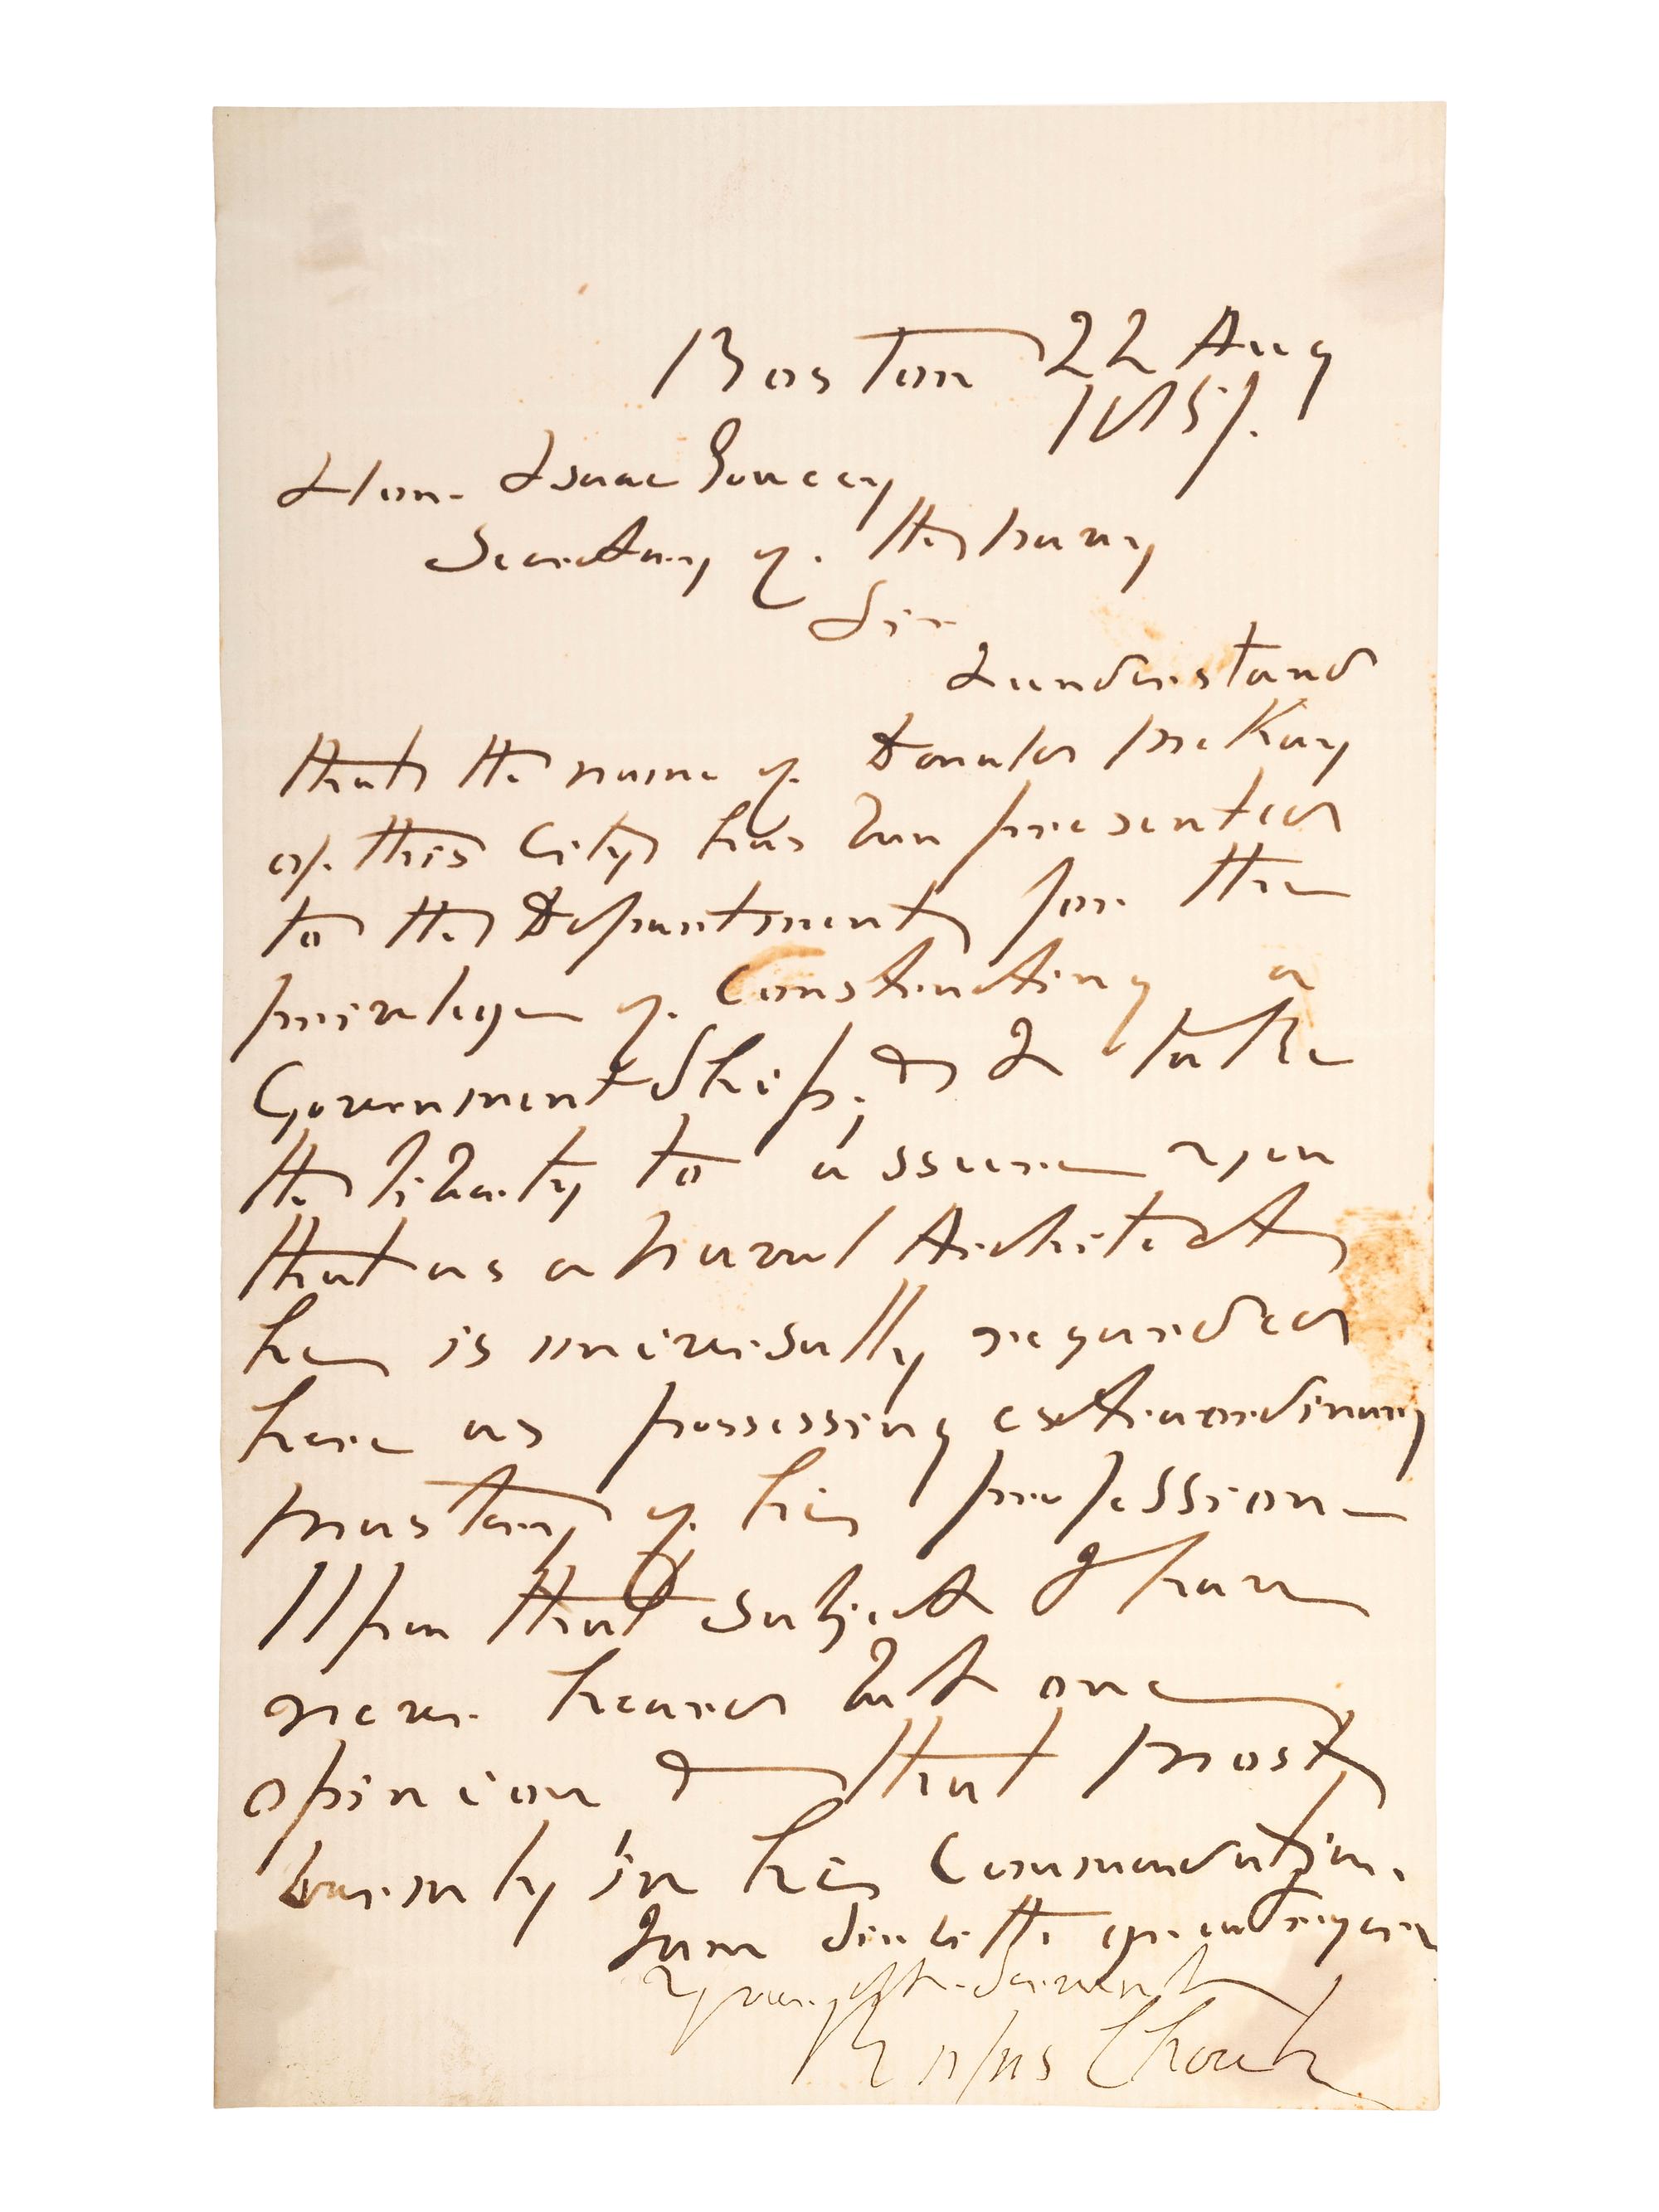 Boston 22 Aug
1857.
Hon. Isaac Toucey
Secretary of the Navy
Sir
I understand
that the name of Donald McKay
of this City has been presented
to the Department for the
privilege of constructing a
Government Ship; & I take
the liberty to assure you
that as a Naval Architect
he is universally regarded
here as possessing extraordinary
mastery of his profession
Upon that subject I have
never heard but one
opinion & that most
warmly in his Commendation.
I am Sir with great regard
Your Obt. Servant
Rufus Choate